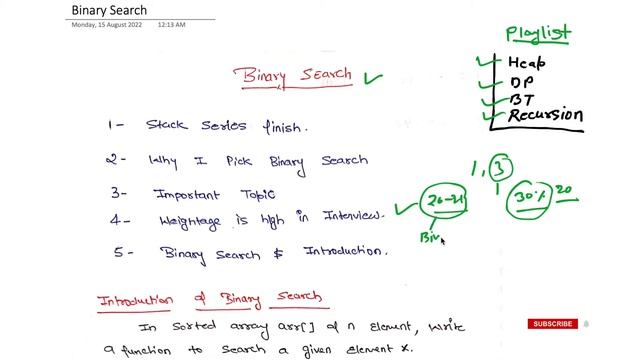 Binary Search
Monday, 15 August 2022 12:13 AM
Playlist
Heap
DP
BT
Recursion
Binary Search
1- Stack Series finish.
2- Why I Pick Binary Search
3- Important Topic
4- Weightage is high in Interview.
5- Binary Search $ Introduction.
1, 3
1
30% 20
Bi
Introduction of Binary Search
In Sorted array arr[] of n Element, write
a function to search a given element x.
SUBSCRIBE